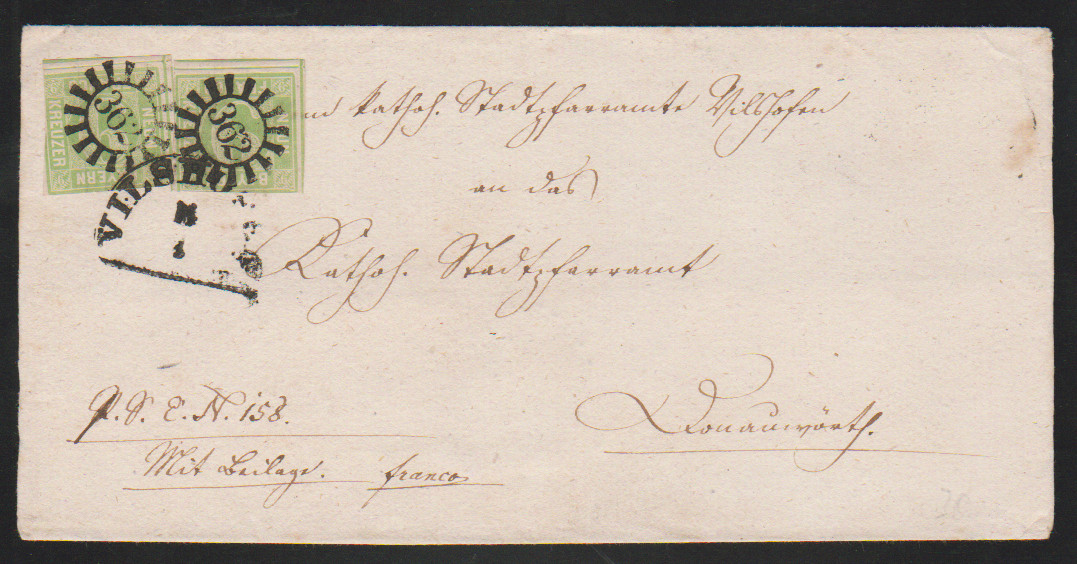 362 362
KREUZER
NEUN
BAYERN
VILSHO
m kathol. Stadtpfarramte Vilshofen
an das
Kathol. Stadtpfarramt
P. S. E. N. 158.
Donauwörth.
Mit Beilage. franco